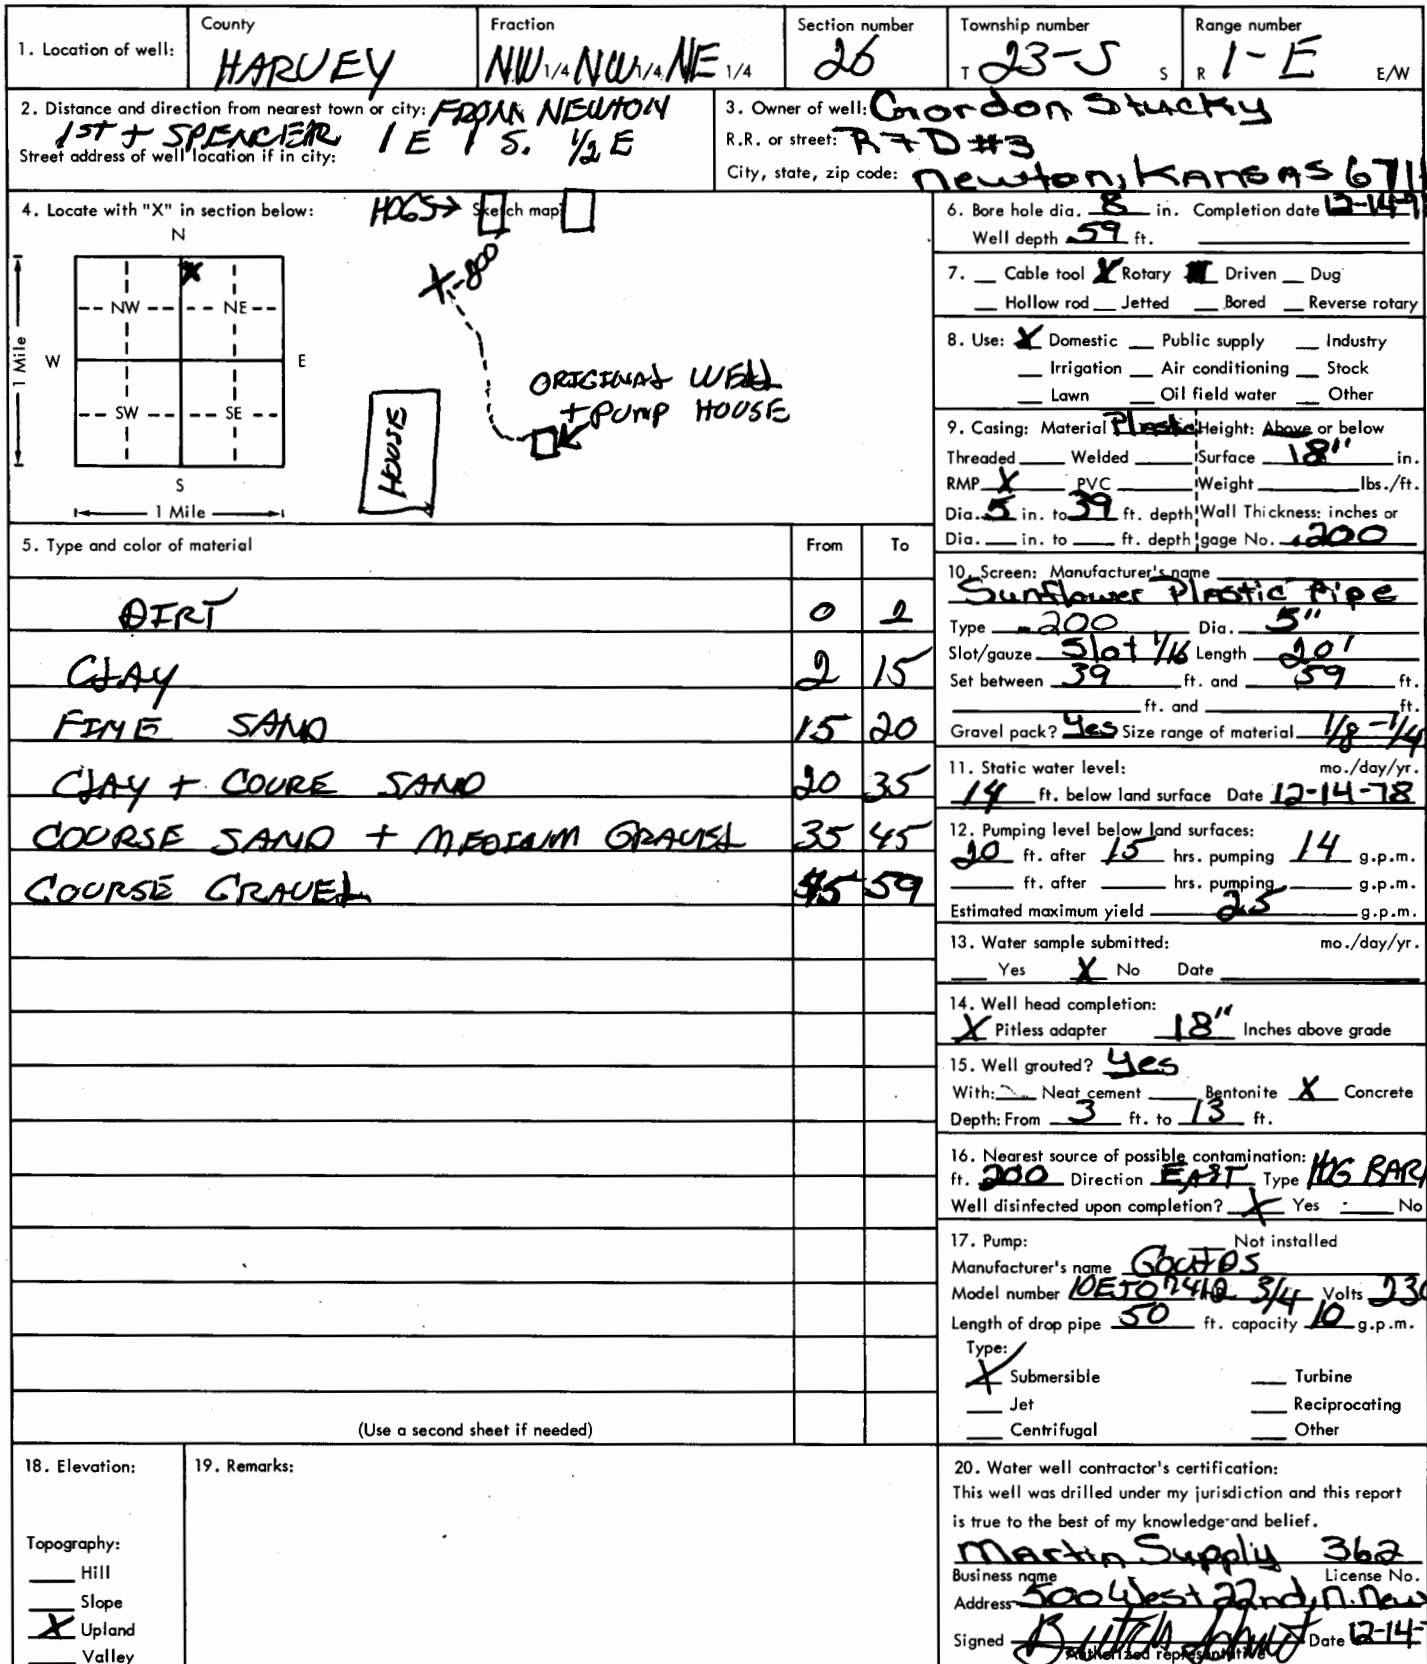 1. Location of well: County HARVEY Fraction NW 1/4 NW 1/4 NE 1/4 Section number 26 Township number T 23-S S Range number R 1-E E/W
2. Distance and direction from nearest town or city: FROM NEWTON
1ST + SPENCER 1 E 1 S. 1/2 E
Street address of well location if in city:
3. Owner of well: Gordon Stucky
R.R. or street: R F D #3
City, state, zip code: Newton, KANSAS 671
4. Locate with "X" in section below:
HOGS → Sketch map:
N
X
NW NE
W E
SW SE
S
1 Mile
1 Mile
X-800
ORIGINAL WELL
+ PUMP HOUSE
HOUSE
5. Type and color of material From To
DIRT 0 2
CLAY 2 15
FINE SAND 15 20
CLAY + COURE SAND 20 35
COURSE SAND + MEDIUM GRAVEL 35 45
COURSE GRAVEL 45 59
(Use a second sheet if needed)
6. Bore hole dia. 8 in. Completion date 12-14-7
Well depth 59 ft.
7. Cable tool X Rotary Driven Dug
Hollow rod Jetted Bored Reverse rotary
8. Use: X Domestic Public supply Industry
Irrigation Air conditioning Stock
Lawn Oil field water Other
9. Casing: Material Plastic Height: Above or below
Threaded Welded Surface 18" in.
RMP X PVC Weight lbs./ft.
Dia. 5 in. to 39 ft. depth Wall Thickness: inches or
Dia. in. to ft. depth gage No. .200
10. Screen: Manufacturer's name
Sunflower Plastic Pipe
Type .200 Dia. 5"
Slot/gauze Slot 1/16 Length 20'
Set between 39 ft. and 59 ft.
ft. and ft.
Gravel pack? Yes Size range of material 1/8 - 1/4
11. Static water level: mo./day/yr.
14 ft. below land surface Date 12-14-78
12. Pumping level below land surfaces:
20 ft. after 15 hrs. pumping 14 g.p.m.
ft. after hrs. pumping g.p.m.
Estimated maximum yield 25 g.p.m.
13. Water sample submitted: mo./day/yr.
Yes X No Date
14. Well head completion:
X Pitless adapter 18" Inches above grade
15. Well grouted? Yes
With: Neat cement Bentonite X Concrete
Depth: From 3 ft. to 13 ft.
16. Nearest source of possible contamination:
ft. 200 Direction EAST Type HOG BAR
Well disinfected upon completion? X Yes No
17. Pump: Not installed
Manufacturer's name
Model number 3/4 Volts 230
Length of drop pipe 50 ft. capacity 10 g.p.m.
Type:
X Submersible Turbine
Jet Reciprocating
Centrifugal Other
18. Elevation:
Topography:
Hill
Slope
X Upland
Valley
19. Remarks:
20. Water well contractor's certification:
This well was drilled under my jurisdiction and this report
is true to the best of my knowledge and belief.
Martin Supply 362
Business name License No.
Address 500 West 22nd, N. New
Signed Date 12-14-
Authorized representative